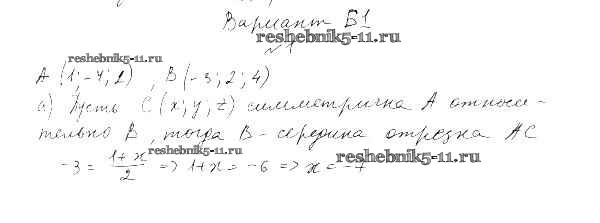 Вариант Б1
reshebnik5-11.ru
№1
reshebnik5-11.ru
A (1; -4; 2) , B (-3; 2; 4)
a) Пусть C (x; y; z) симметрична A относи-
тельно B, тогда B - середина отрезка AC
reshebnik5-11.ru
-3 = (1+x)/2 => 1+x = -6 => x = -7
reshebnik5-11.ru